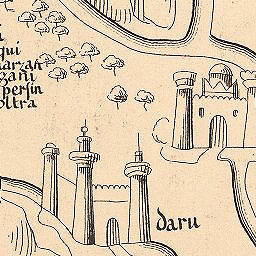 qui
marzan
gani
persin
oltra
daru